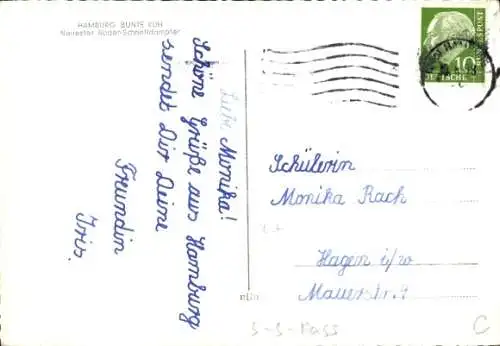 HAMBURG BUNTE KUH
Neuester Bäder-Schnelldampfer
Liebe Monika!
Schöne Grüße aus Hamburg
sendet Dir Deine
Freundin
Iris.
10
DEUTSCHE
BUNDESPOST
Schülerin
Monika Rach
Hagen i/w
Mauerstr. 4
S-S-Pass
C